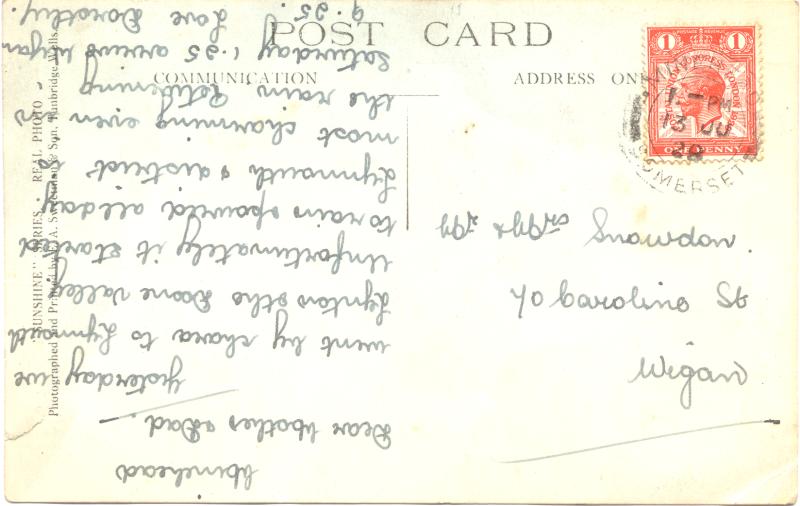 POST CARD
COMMUNICATION
ADDRESS ONLY
"SUNSHINE" SERIES. REAL PHOTO
Photographed and Printed by E.A. Sweetman & Son, Tunbridge Wells.
1 1
POSTAGE REVENUE
ONE PENNY
1 - PM
13 JU
SOMERSET
Minehead
Dear Mother & Dad.
Yesterday we
went by chara to Lynmouth
Lynton & the Doone Valley
Unfortunately it started
to rain & poured all day
Lynmouth & district is
most charming even in
the rain. Returning
Saturday 1.25 arrive Wigan
9.25. Love Dorothy.
Mr & Mrs Snowdon.
70 Caroline St
Wigan